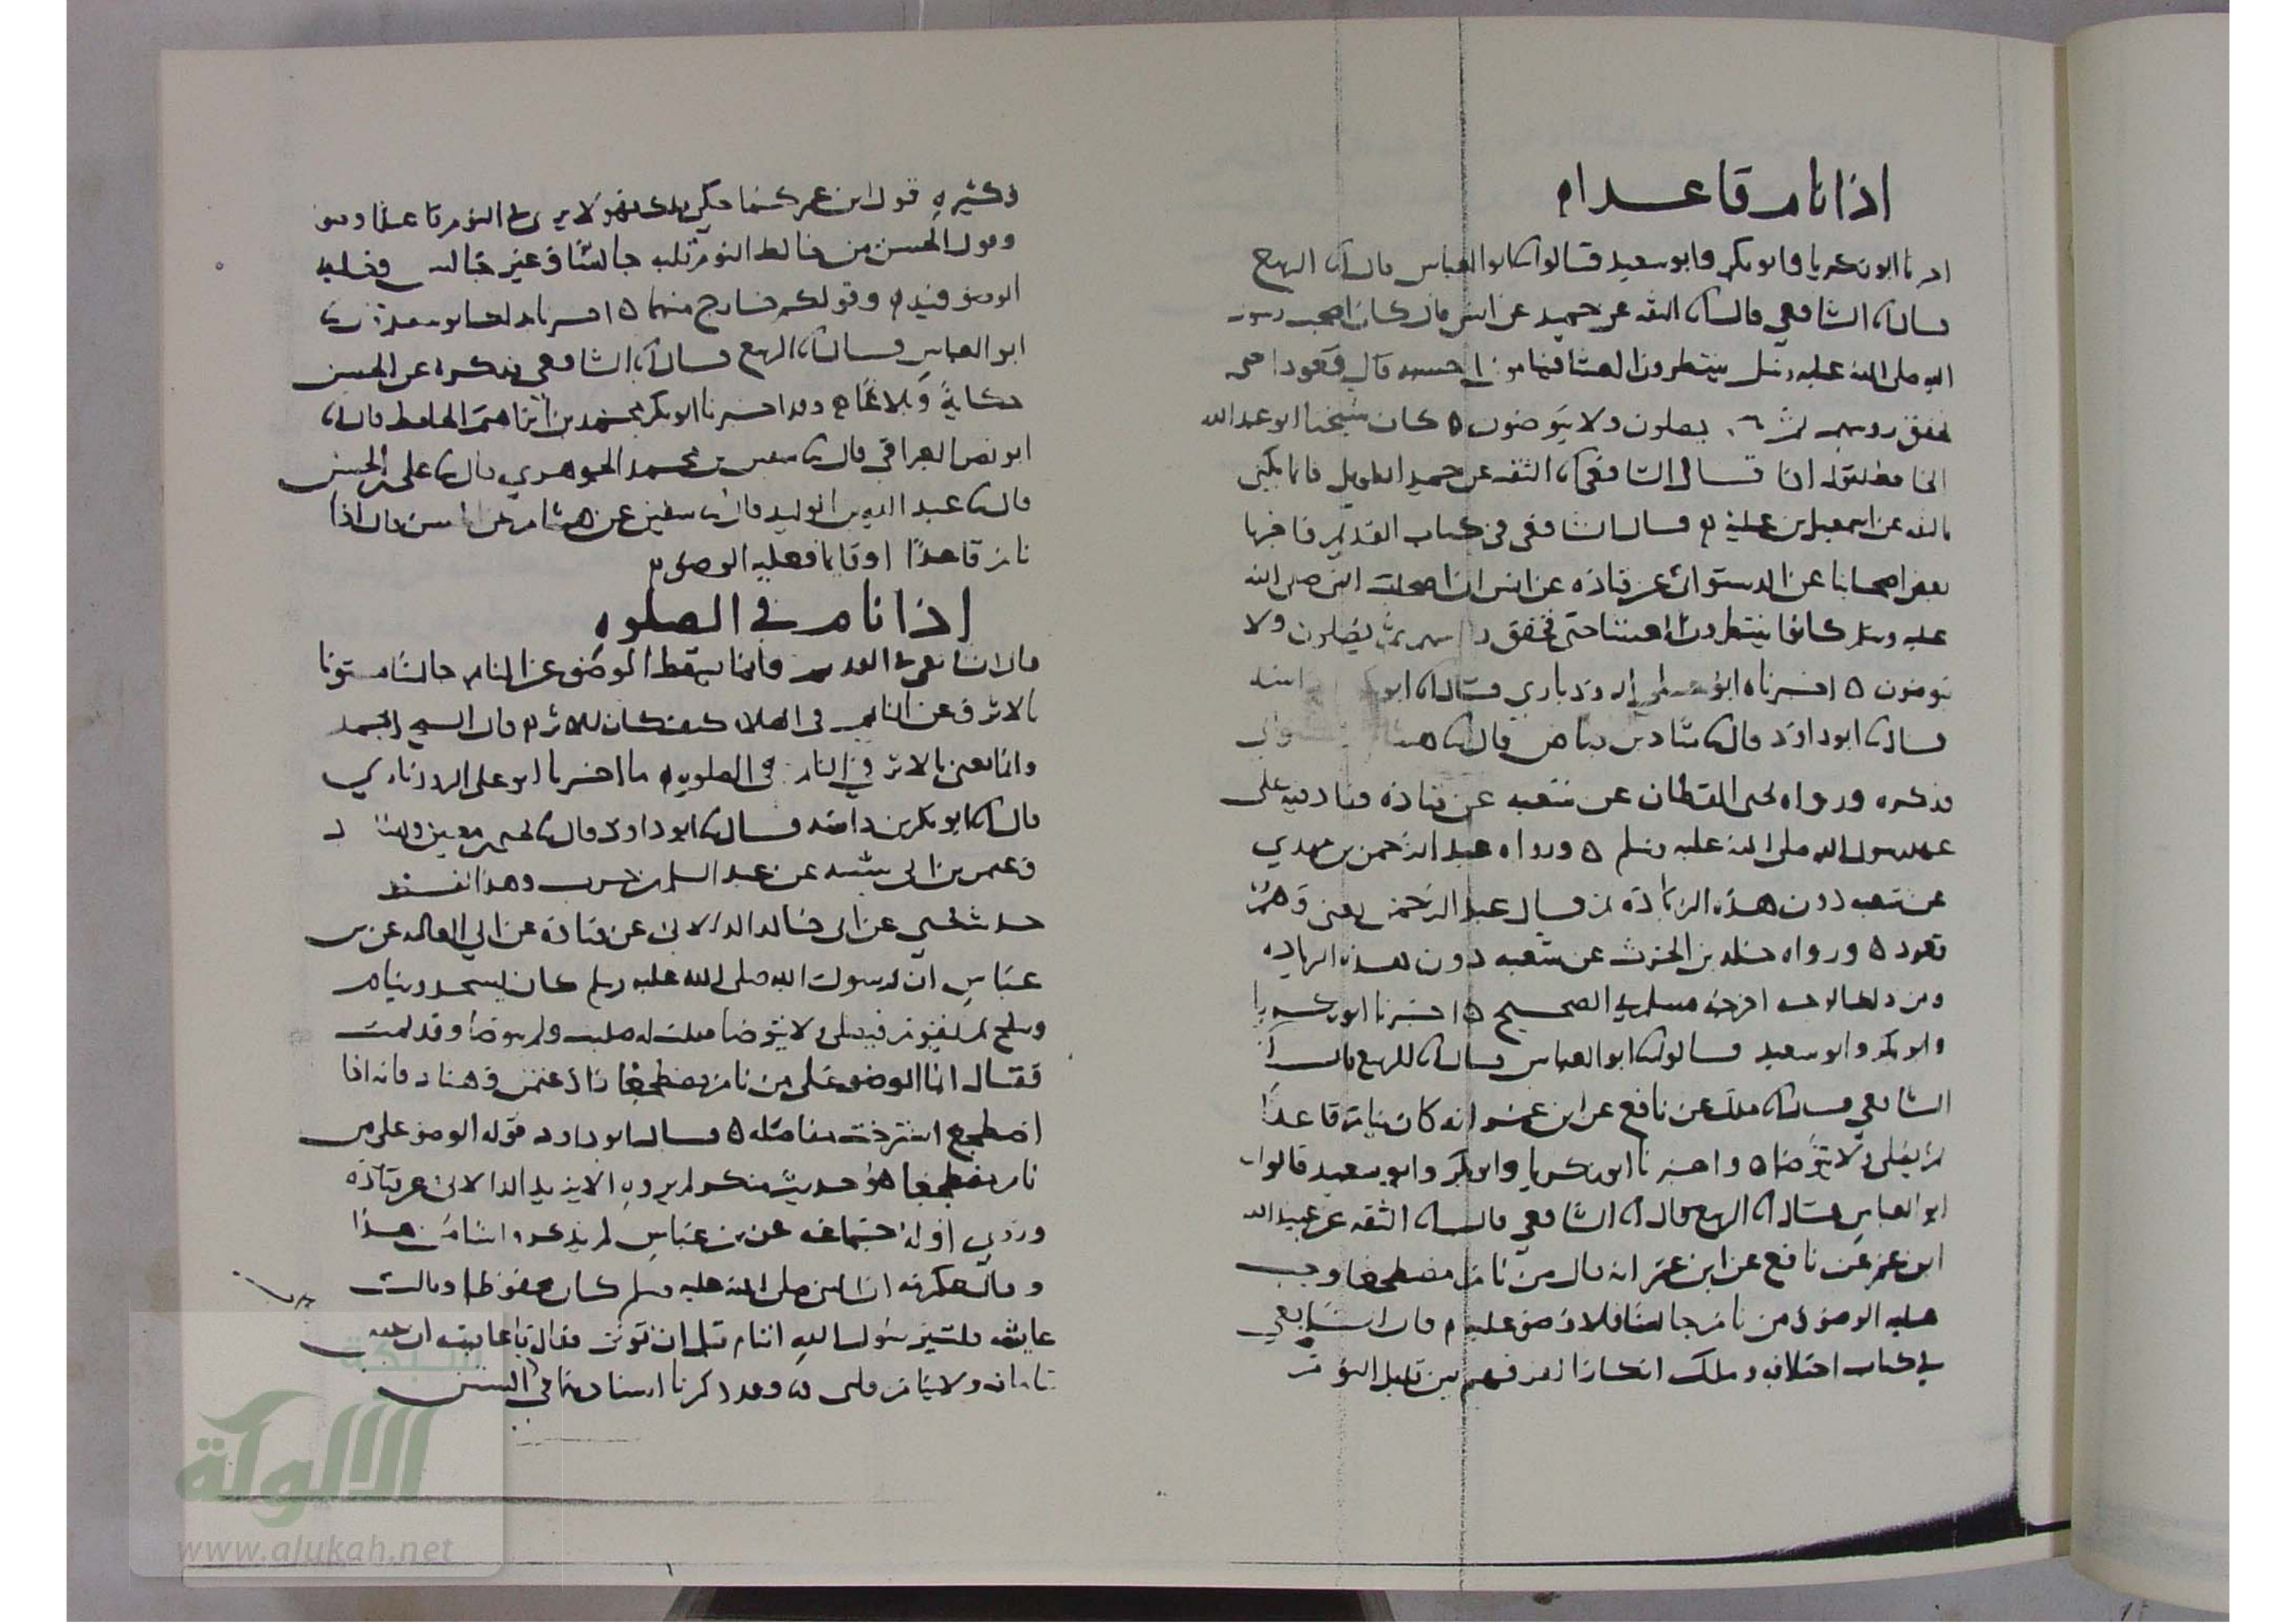 اذا نام قاعدا
اخبرنا ابو زكريا وابو بكر وابو سعيد قالوا ابو العباس قال الربيع
قال الشافعي قال الثقة عن حميد عن انس قال كان اصحاب رسول
الله صلى الله عليه وسلم ينتظرون العشا فينامون احسبه قال قعودا حتى
تخفق روسهم ثم يصلون ولا يتوضون كان شيخنا ابو عبد الله
الحافظ يقول اذا قال الشافعي الثقة عن حميد الطويل فانما يكنى
بالثقة عن اسمعيل بن علية قال الشافعي في كتاب القديم فاخبرنا
بعض اصحابنا عن الدستوائي عن قتادة عن انس ان اصحاب النبي صلى الله
عليه وسلم كانوا ينتظرون العشا حتى تخفق روسهم ثم يصلون ولا
يتوضون اخبرناه ابو علي الروذباري قال ابو
قال ابو داود قال شاذ بن فياض قال
فذكره ورواه يحيى القطان عن شعبه عن قتادة فزاد فيه على
عهد رسول الله صلى الله عليه وسلم ورواه عبد الرحمن بن مهدي
عن شعبه دون هذه الزيادة ثم قال عبد الرحمن يعني وهم
قعود ورواه خالد بن الحرث عن شعبه دون هذه الزياده
ومن ذلك الوجه اخرجه مسلم في الصحيح اخبرنا ابو زكريا
وابو بكر وابو سعيد قالوا ابو العباس قال الربيع قال
الشافعي قال ملك عن نافع عن ابن عمر انه كان ينام قاعدا
ثم يصلي ولا يتوضا واخبرنا ابو زكريا وابو بكر وابو سعيد قالوا
ابو العباس قال الربيع قال الشافعي قال الثقه عن عبيد الله
ابن عمر عن نافع عن ابن عمر انه قال من نام مضطجعا وجب
عليه الوضو ومن نام جالسا فلا وضو عليه قال الشافعي
في كتاب اختلافه وملك انكارا لفرقهم بين قليل النوم
وكثيره قول ابن عمر كما حكى ملك وهو لا يرى في النوم قاعدا وضو
وقول الحسن من خالط النوم قلبه جالسا وغير جالس فعليه
الوضو وقولكم خارج منهما اخبرنا بذلك ابو سعيد
ابو العباس قال الربيع قال الشافعي فذكره عن الحسن
حكاية وبلاغا وقد اخبرنا ابو بكر محمد بن ابراهيم الحافظ قال
ابو نصر العراقي قال سفين بن محمد الجوهري قال علي بن الحسن
قال عبد الله بن الوليد قال سفين عن هشام عن الحسن قال اذا
نام قاعدا او قايما فعليه الوضو
اذا نام في الصلوه
قال الشافعي في القديم وانما يسقط الوضو عن النايم جالسا مستويا
بالاثر وعن النايم في الصلاه كيف كان للاثر قال الشيخ احمد
وانما يعني بالاثر في النايم في الصلوه ما اخبرنا ابو علي الروذباري
قال ابو بكر بن داسه قال ابو داود قال يحيى بن معين وهناد
وعثمن بن ابي شيبه عن عبد السلم بن حرب وهذا لفظ
حديث يحيى عن ابي خالد الدالاني عن قتادة عن ابي العاليه عن بن
عباس ان رسول الله صلى الله عليه وسلم كان يسجد وينام
وينفخ ثم يقوم فيصلي ولا يتوضا فقلت له صليت ولم تتوضا وقد نمت
فقال انما الوضو على من نام مضطجعا زاد عثمن وهناد فانه اذا
اضطجع استرخت مفاصله قال ابو داود قوله الوضو على من
نام مضطجعا هو حديث منكر لم يروه الا يزيد الدالاني عن قتادة
وروى اوله جماعه عن بن عباس لم يذكروا شيا من هذا
وقال عكرمه ان النبي صلى الله عليه وسلم كان محفوظا وقالت
عايشه قلت يا رسول الله اتنام قبل ان توتر فقال يا عايشه ان عيني
تنامان ولا ينام قلبي وقد ذكرنا اسنادهما في السنن
شبكة
الألوكة
www.alukah.net